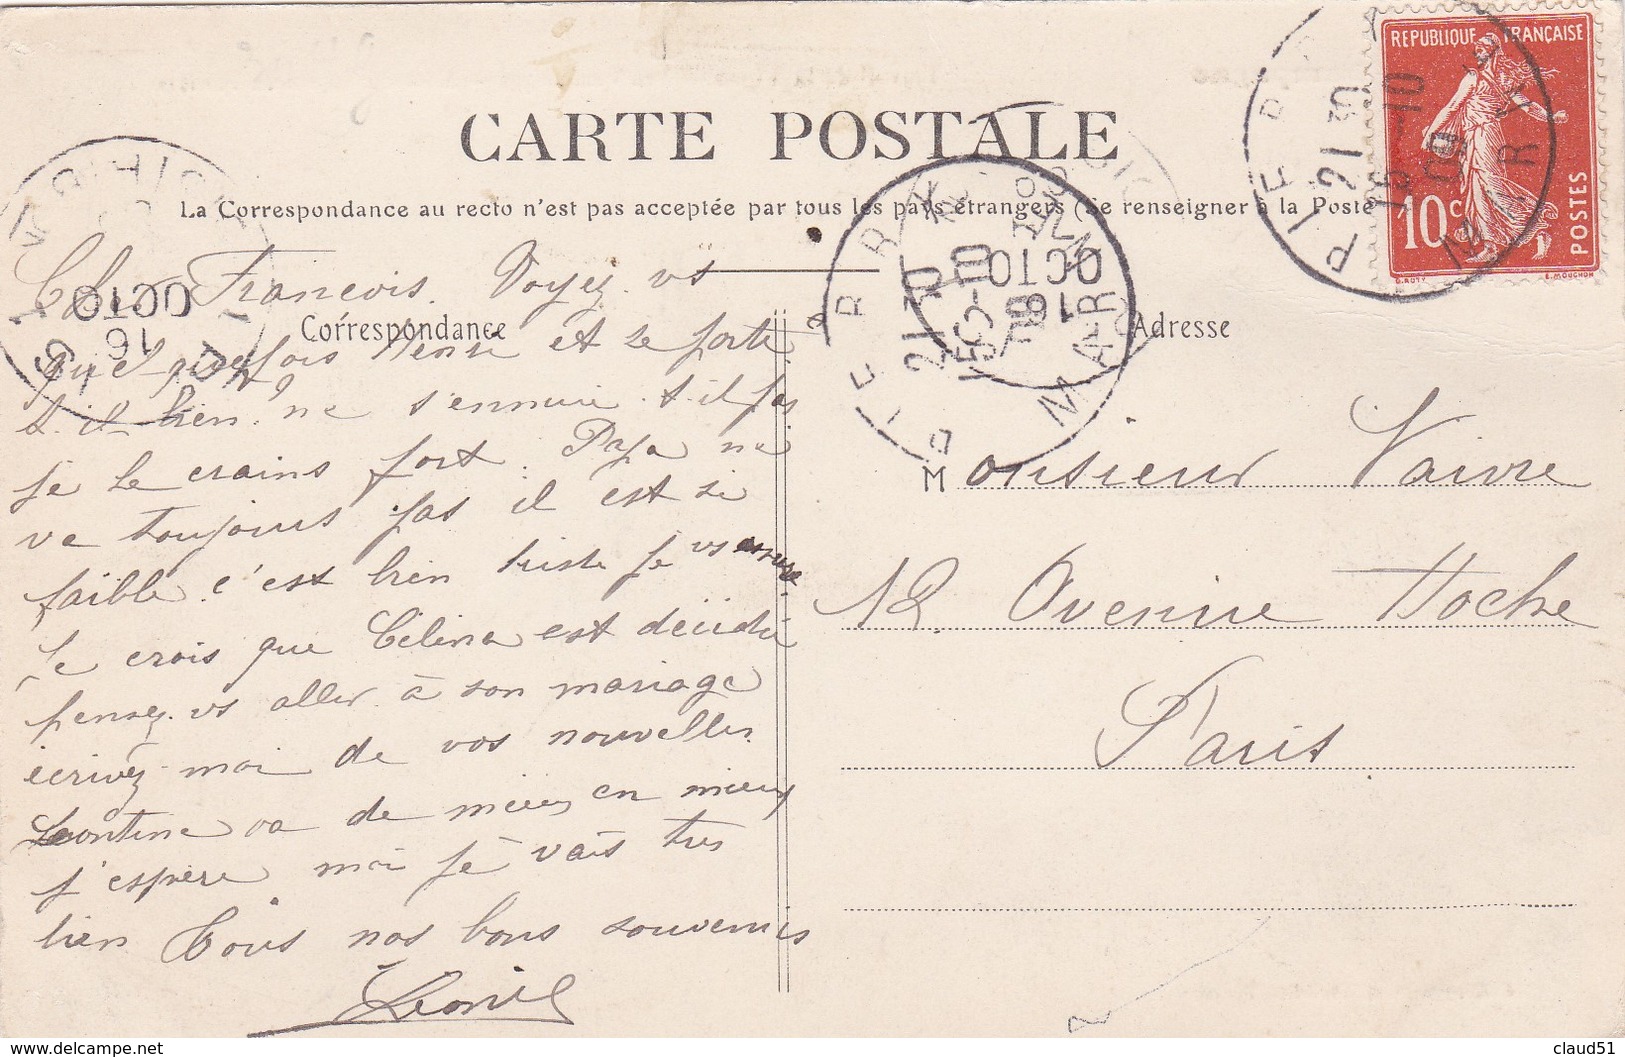 CARTE POSTALE
La Correspondance au recto n'est pas acceptée par tous les pays étrangers (Se renseigner à la Poste
Correspondance
Adresse
REPUBLIQUE FRANÇAISE
10c
POSTES
O. ROTY
E. MOUCHON
PIERRY
MARNE
21 30
16 -10
09
PIERRY
MARNE
21 30
15 -10
09
16
OCTO
16
OCTO
Cher Francois. Voyez vs
quelquefois Henri et se porte
t-il bien. ne s'ennuie t-il pas
je le crains fort. Papa ne
va toujours pas il est si
faible c'est bien triste je vs assure.
Je crois que Célina est décidé
pensez vs aller à son mariage
écrivez-moi de vos nouvelles
Léontine va de mieux en mieux
j'espère moi je vais très
bien Tous nos bons souvenirs
Monsieur Vaivre
12 Avenue Hoche
Paris
delcampe.net
claud51